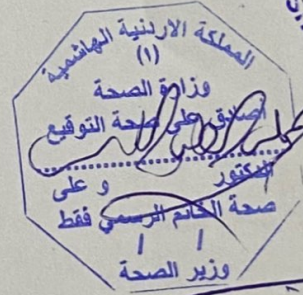 المملكة الاردنية الهاشمية
(١)
وزارة الصحة
أصادق على صحة التوقيع
الدكتور
و على
صحة الخاتم الرسمي فقط
/ /
وزير الصحة